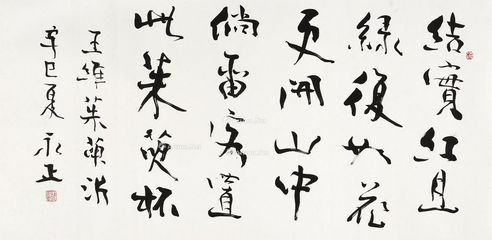 結實紅且
綠復如花
更開山中
倘留客置
此茱萸杯
王維茱萸沜
辛巳夏 永正